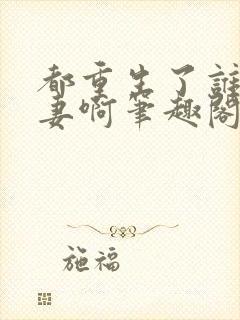 都重生了誰
妻啊筆趣閣
施福